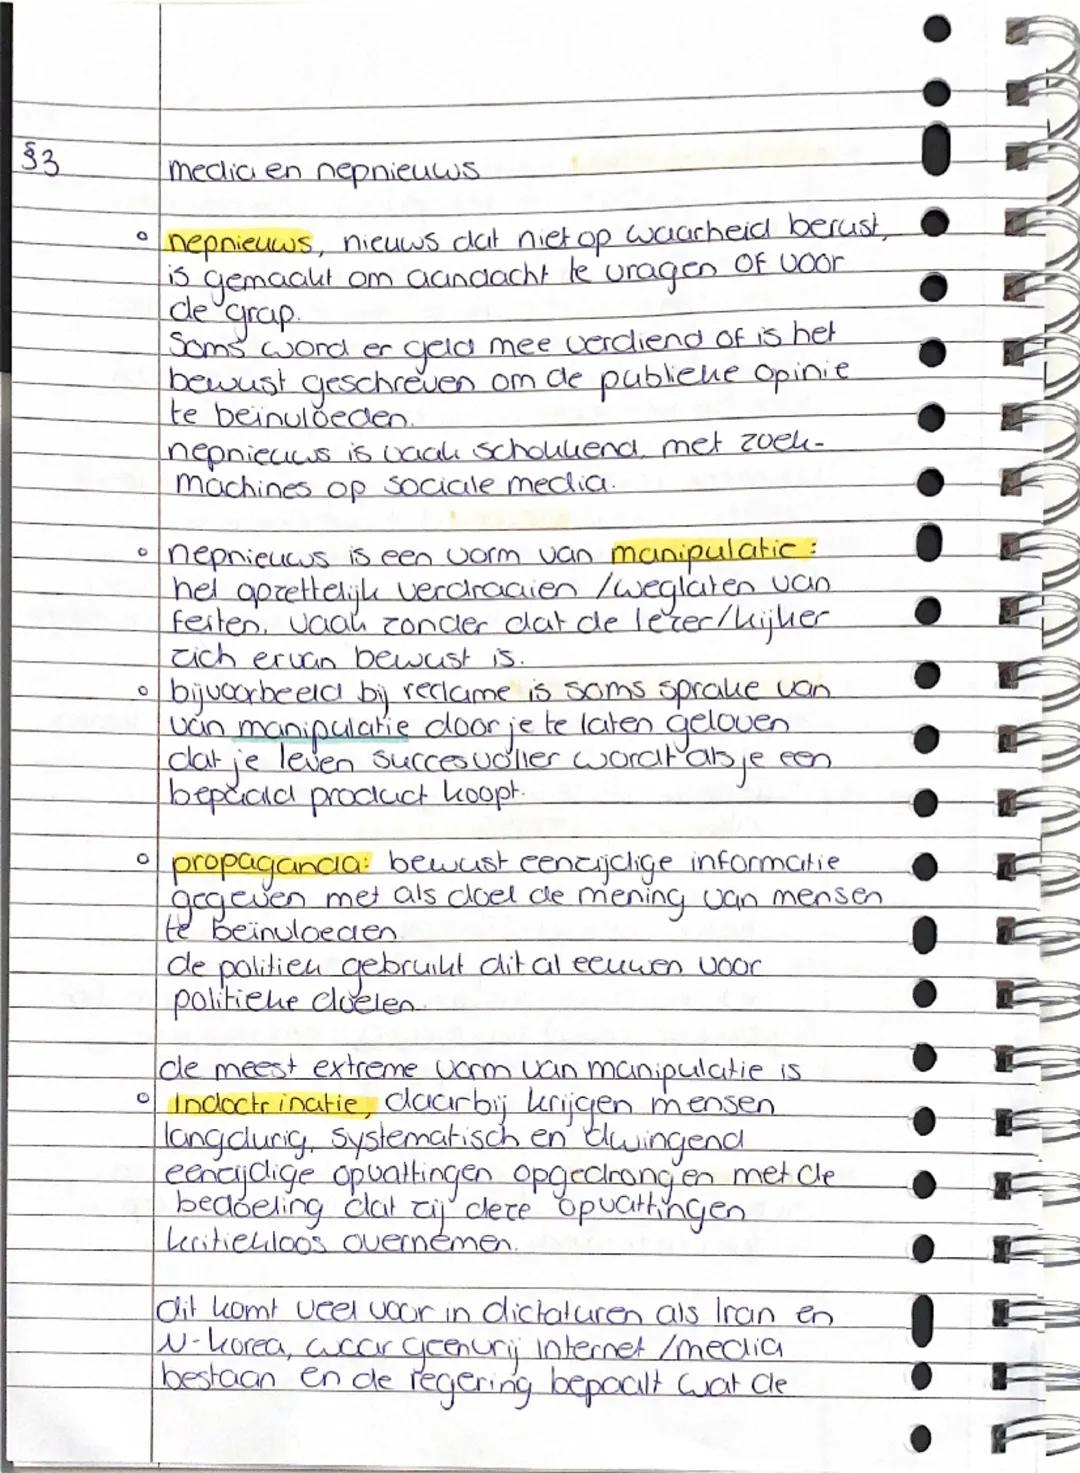 §3 media en nepnieuws
nepnieuws, nieuws dat niet op waarheid berust,
is gemaakt om aandacht te vragen OF voor
de grap.
Soms word er geld mee verdiend of is het
bewust geschreven om de publieke opinie
te beïnvloeden.
nepnieuws is vaak schokkend, met zoek-
machines op sociale media.
nepnieuws is een vorm van manipulatie:
het opzettelijk verdraaien /weglaten van
feiten, vaak zonder dat de lezer/kijker
zich ervan bewust is.
bijvoorbeeld bij reclame is soms sprake van
van manipulatie door je te laten geloven
dat je leven succesvoller wordt als je een
bepaald product koopt.
propaganda: bewust eenzijdige informatie
gegeven met als doel de mening van mensen
te beïnvloeden.
de politiek gebruikt dit al eeuwen voor
politieke doelen.
de meest extreme vorm van manipulatie is
Indoctrinatie, daarbij krijgen mensen
langdurig, systematisch en dwingend
eenzijdige opvattingen opgedrongen met de
bedoeling dat zij deze opvattingen
kritiekloos overnemen.
dit komt veel voor in dictaturen als Iran en
N-korea, waar geen vrij internet /media
bestaan en de regering bepaalt wat de